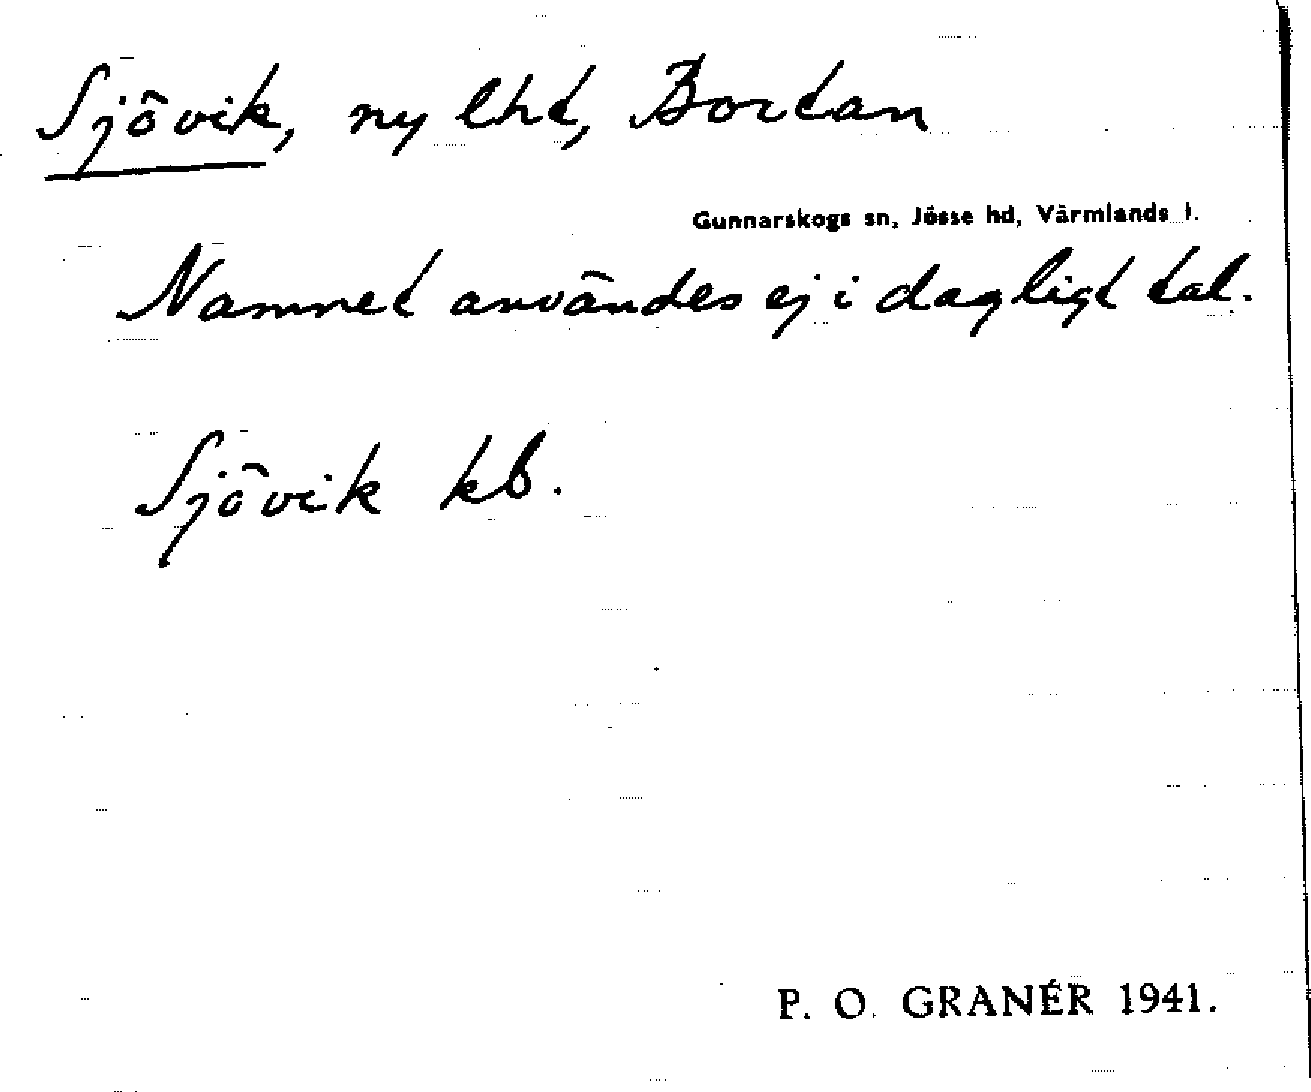 Sjövik, ny lht, Bortan
Gunnarskogs sn, Jösse hd, Värmlands l.
Namnet användes ej i dagligt tal.
Sjövik kb.
P. O. GRANÉR 1941.